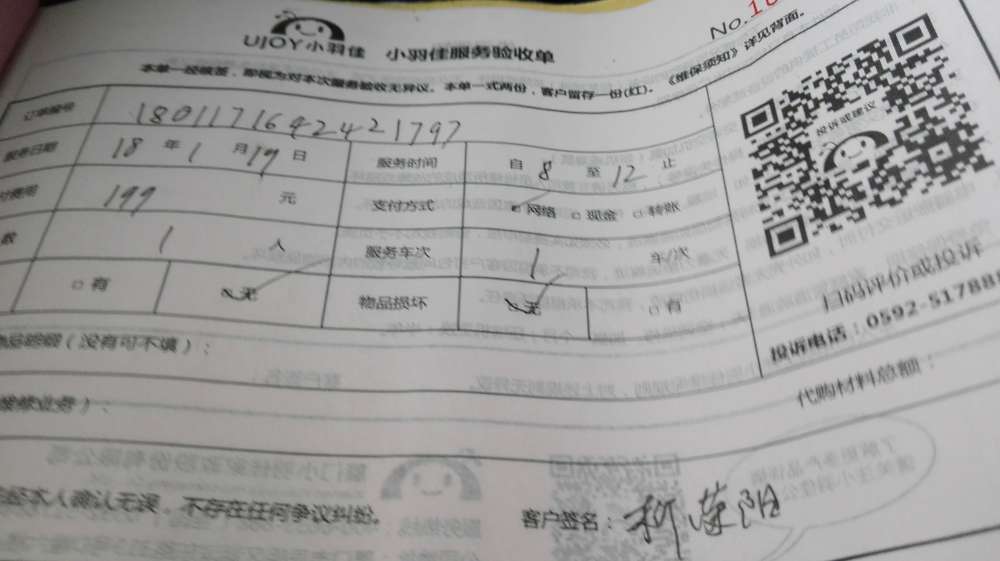 No.10
UJOY小羽佳 小羽佳服务验收单
本单一经核签,即视为对本次服务验收无异议。本单一式两份,客户留存一份(红)。《维保须知》详见背面。
订单编号 18011716424421797
服务日期 18年1月19日 服务时间 自8至12止
付费用 199元 支付方式 网络 □现金 □转账
数 1人 服务车次 1车/次
□有 无 物品损坏 无 □有
投诉或建议
扫码评价或投诉
投诉电话:0592-51788
(没有可不填):
维修业务):
代购材料总额:
经本人确认无误,不存在任何争议纠纷。
客户签名:柯荣阳